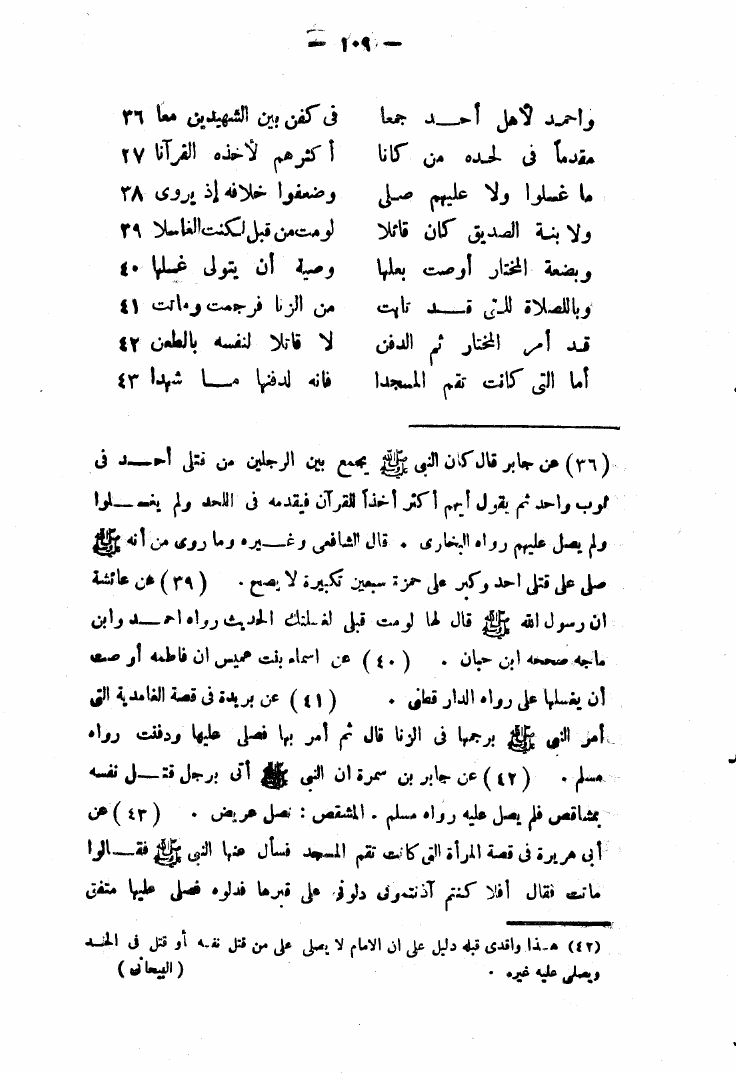 — ٢٠٩ —
واحمد لأهل أحـــد جمعا فى كفن بين الشهيدين معا ٣٦
مقدماً فى لحده من كانا أكثرهم لأخذه القرآنا ٢٧
ما غسلوا ولا عليهم صلى وضعفوا خلافه إذ يروى ٣٨
ولا بنة الصديق كان قائلا لو مت من قبل لكنت الغاسلا ٣٩
وبضعة المختار أوصت بعلها وصية أن يتولى غسلها ٤٠
وبالصلاة للتى قـــد تابت من الزنا فرجمت وماتت ٤١
قد أمر المختار ثم الدفن لا قاتلا لنفسه بالطعن ٤٢
أما التى كانت تقم المسجدا فانه لدفنها مـــا شهدا ٤٣
(٣٦) عن جابر قال كان النبى ﷺ يجمع بين الرجلين من قتلى أحـــد فى
ثوب واحد ثم يقول أيهم أكثر أخذاً للقرآن فيقدمه فى اللحد ولم يغســـلوا
ولم يصل عليهم رواه البخارى . قال الشافعى وغـــيره وما روى من أنه ﷺ
صلى على قتلى احد وكبر على حمزة سبعين تكبيرة لا يصح . (٣٩) عن عائشة
ان رسول الله ﷺ قال لها لو مت قبلى لغسلتك الحديث رواه احمـــد وابن
ماجه صححه ابن حبان . (٤٠) عن اسماء بنت عميس ان فاطمه أوصت
أن يغسلها على رواه الدار قطنى . (٤١) عن بريدة فى قصة الغامدية التى
أمر النبى ﷺ برجمها فى الزنا قال ثم أمر بها فصلى عليها ودفنت رواه
مسلم . (٤٢) عن جابر بن سمرة ان النبى ﷺ أتى برجل قتـــل نفسه
بمشاقص فلم يصل عليه رواه مسلم . المشقص : نصل عريض . (٤٣) عن
أبى هريرة فى قصة المرأة التى كانت تقم المسجد فسأل عنها النبى ﷺ فقـــالوا
ماتت فقال أفلا كنتم آذنتمونى دلونى على قبرها فدلوه فصلى عليها متفق
(٤٢) هـذا واقدى قبله دليل على ان الامام لا يصلى على من قتل نفسه أو قتل فى الحـد
ويصلى عليه غيره . (البيحانى)